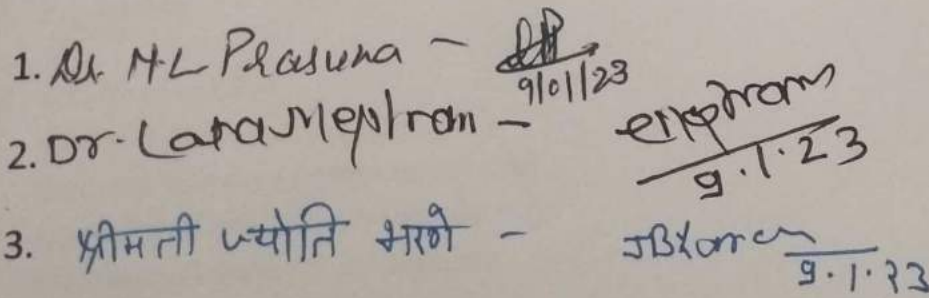 1. Dr. M.L Prasuna - 9/01/23
2. Dr. Lata Meshram - 9.1.23
3. श्रीमती ज्योति भरणे - 9.1.23